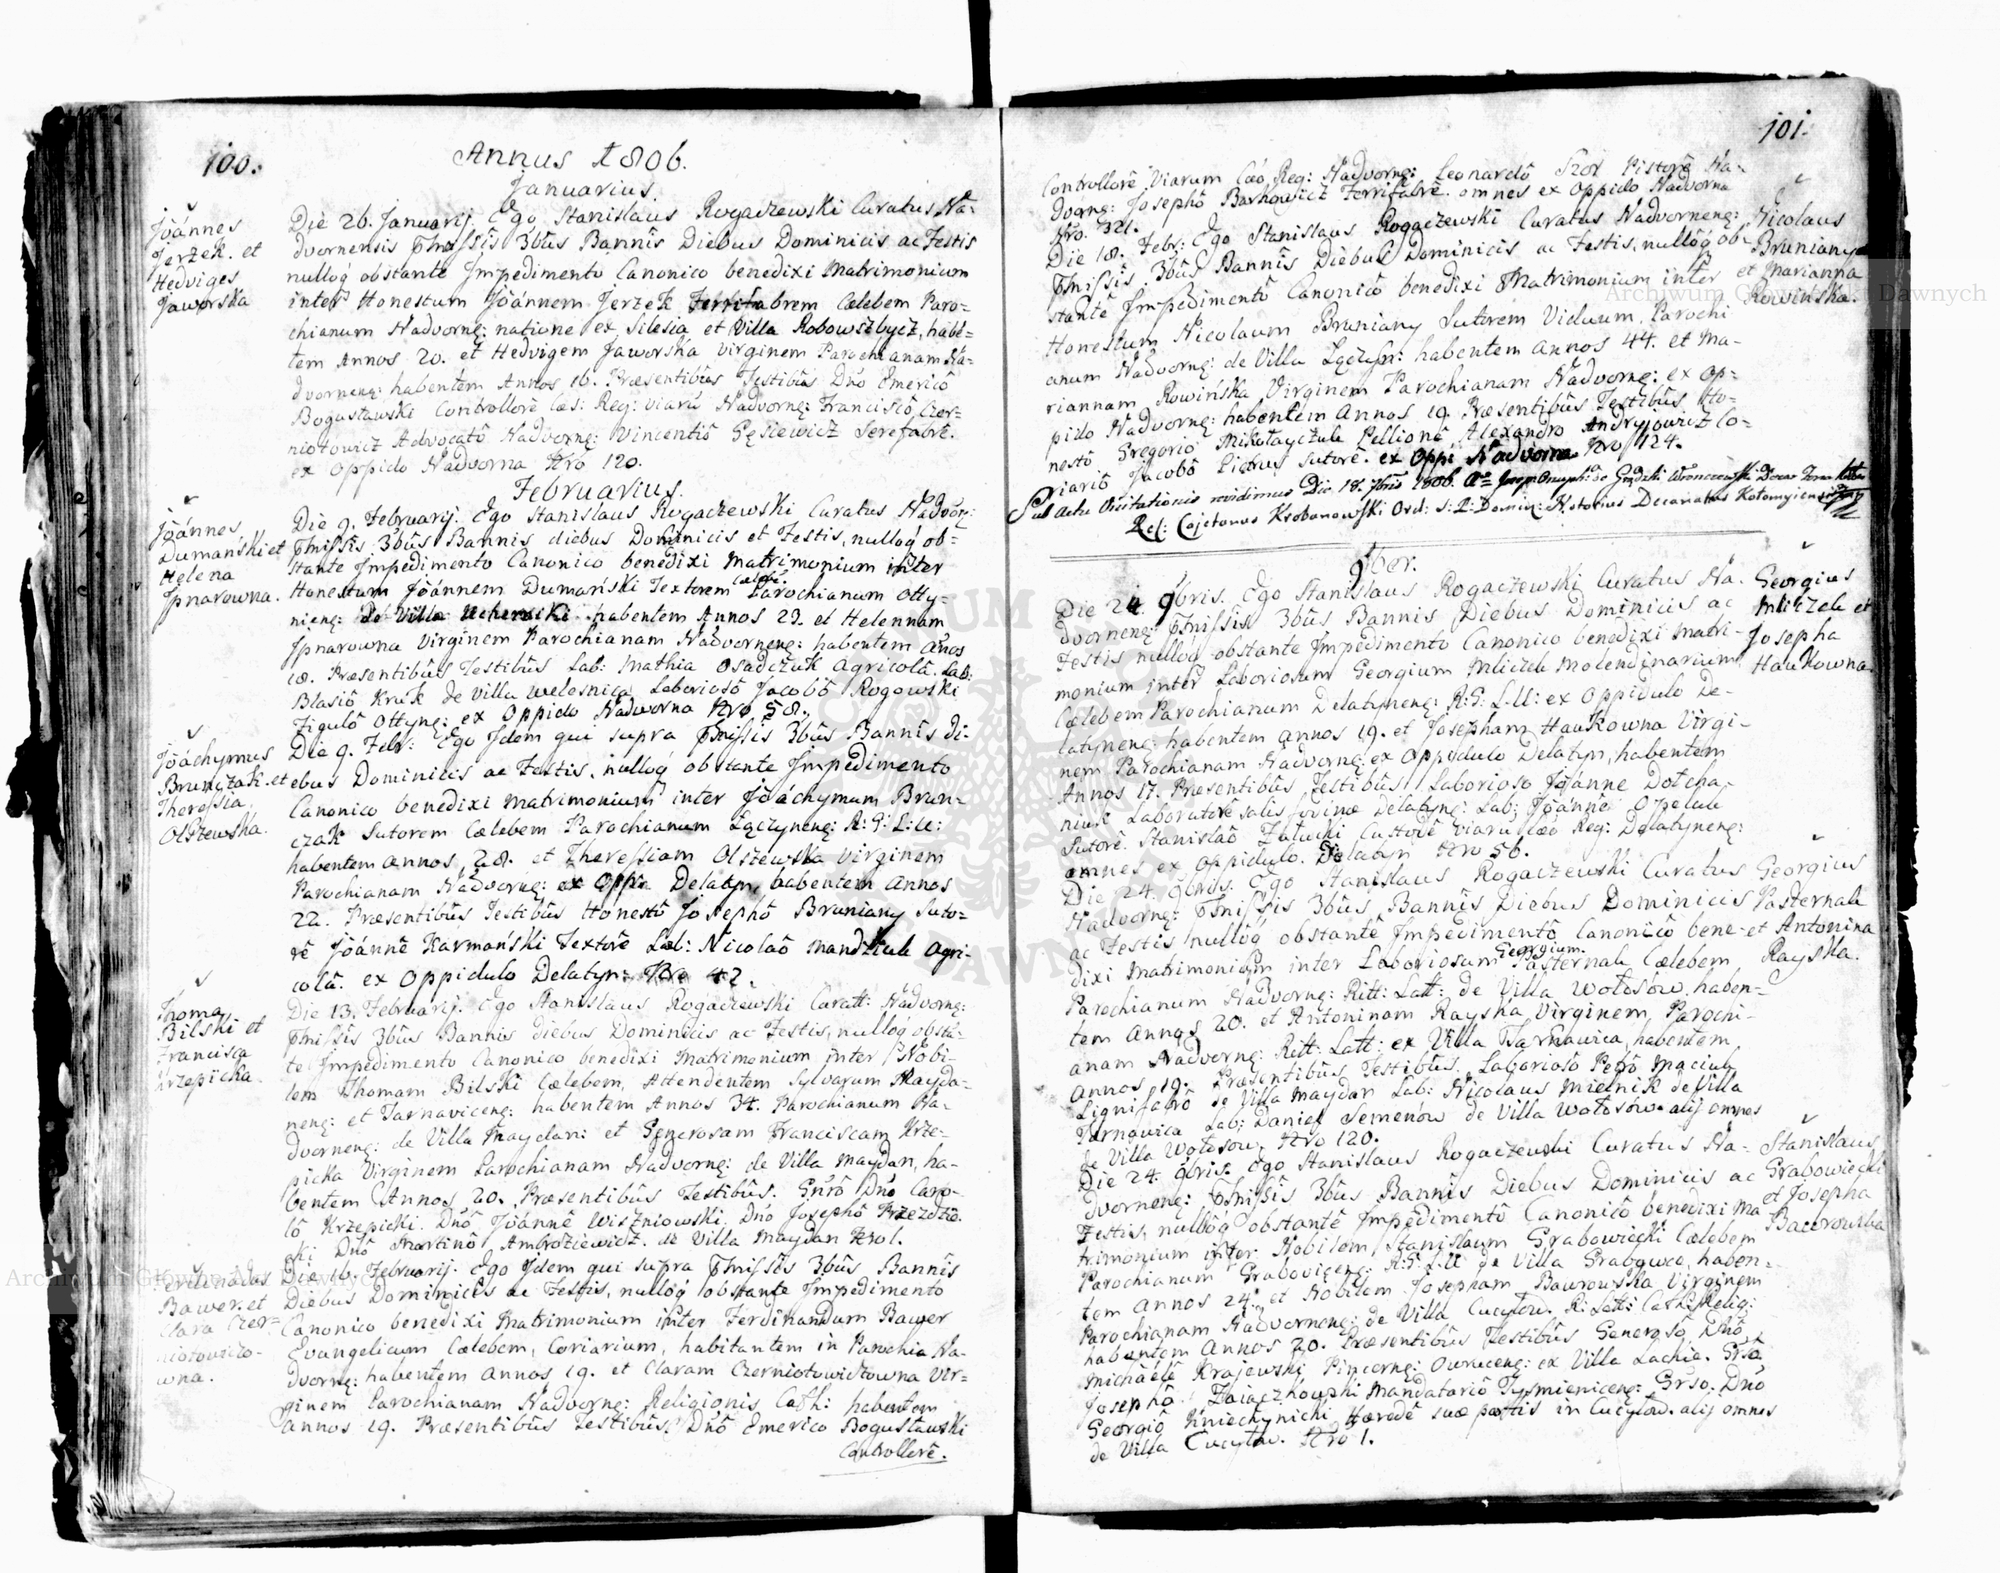 100.
Annus 1806.
Januarius.
Joánnes
Jerzek. et
Hedviges
Jaworska
Die 26. Januarij. Ego Stanislaus Rogaczewski Curatus Na-
dvornensis Pmissis 3bus Bannis Diebus Dominicis ac Festis
nulloq obstante Impedimento Canonico benedixi Matrimonium
inter Honestum Joánnem Jerzek Ferrifabrem Cælebem Paro-
chianum Nadvornę: natione ex Silesia et Villa Robowszbycz, habe-
tem Annos 20. et Hedvigem Jaworska Virginem Parochianam Na-
dvornenę: habentem Annos 16. Præsentibûs Testibûs Dnô Emericô
Bogusławski Controllorê Cæs: Reg: viarû Nadvornę: Franciscô Czer-
niotowicz Advocatô Nadvornę: Vincentiô Gęsiewicz Serefabrê.
ex Oppido Nadvorna Nrô 120.
Februarius.
Joánnes
Dumański et
Helena
Jpnarowna.
Die 9. Februarij. Ego Stanislaus Rogaczewski Curatus Nadvorę:
Pmissis 3bûs Bannis diebus Dominicis et Festis, nulloq ob-
stante Impedimento Canonico benedixi Matrimonium inter
Honestum Joánnem Dumański Textorem Cæleb: Parochianum Otty-
nienę: de Villa habentem Annos 23. et Helennam
Jpnarowna Virginem Parochianam Nadvornenę: habentem años
18. Præsentibûs Testibûs Lab: Mathia Osadczuk Agricolâ. Lab:
Blasiô Kruk de Villa Welesnica Laboriosô Jacobô Rogowski
Figulô Ottynę: ex Oppido Nadworna Nrô 58.
Joáchymus
Brunczak. et
Theressia
Olszewska.
Die 9. Febr: Ego Jdem qui supra Pmissis 3bûs Bannis Di-
ebus Dominicis ac Festis, nulloq obstante Impedimento
Canonico benedixi Matrimonium inter Joáchymum Brun-
czak Sutorem Cælebem Parochianum Łączynenę: R: G: L: U:
habentem annos 28. et Theressiam Olszewska Virginem
Parochianam Nadvornę: ex Oppi Delatyn, habentem Annos
22. Præsentibûs Testibûs Honestô Josephô Bruniany Suto-
rê Joánnê Karmański Textorê Lab: Nicolaô Mandziuk Agri-
colâ. ex Oppidulo Delatyn: Nro 42.
Thoma
Bilski et
Francisca
Krzepicka.
Die 13. Februarij. Ego Stanislaus Rogaczewski Curatt: Nadvornę:
Pmissis 3bûs Bannis Diebus Dominicis ac Festis, nulloq obstâ-
te Impedimento Canonico benedixi Matrimonium inter Nobi-
lem Thomam Bilski Cælebem, Attendentem Sylvarum Mayda-
nenę: et Tarnavicenę: habentem Annos 34. Parochianum Na-
dvornenę: de Villa Maydan: et Generosam Franciscam Krze-
picka Virginem Parochianam Nadvornę: de Villa Maydan, ha-
bentem Annos 20. Præsentibûs Testibûs. Gnrô Dnô Caro-
lô Krzepicki. Dnô Joánnê Wiszniowski. Dnô Josephô Przezdzie-
cki Dnô Martinô Ambroziewicz. de Villa Maydan Nro 1.
Ferdinandus
Bawer. et
Clara Czer-
niotowiczo-
wna.
Die 16. Februarij. Ego Jdem qui supra Pmissis 3bûs Bannis
Diebus Dominicis ac Festis, nulloq obstante Impedimento
Canonico benedixi Matrimonium inter Ferdinandum Bawer
Evangelicum Cælebem, Coriarium, habitantem in Parochia Na-
dvornę: habentem annos 19. et Claram Czerniotowiczowna Vir-
ginem Parochianam Nadvornę: Religionis Cath: habentem
annos 19. Præsentibûs Testibûs Dnô Emerico Bogusławski
Controllorê.
101.
Controllorê Viarum Cæô Reg: Nadvornę: Leonardô Szor Pistorê Na-
dvornę: Josephô Barkowicz Ferrifabrê. omnes ex Oppido Nadvorna
Nro. 321.
Nicolaus
Bruniany
et Marianna
Rowińska.
Die 18. Febr: Ego Stanislaus Rogaczewski Curatus Nadvornenę:
Pmissis. 3bûs Bannis Diebus Dominicis ac Festis, nulloq ob-
stantê Impedimentô Canonicô benedixi Matrimonium inter
Honestum Nicolaum Bruniany Sutorem Viduum, Parochi
anum Nadvornę: de Villa Łączyn: habentem annos 44. et Ma-
riannam Rowińska Virginem Parochianam Nadvornę: ex Op-
pido Nadvornę: habentem Annos 19. Præsentibûs Testibûs Ho-
nestô Gregoriô Mikołayczuk Pellionê, Alexandro Andryjowicz Co-
riariô Jacobô Pietrus Sutorê. ex Oppi Nadvorna Nro 124.
Sub Actu Visitationis revidimus Die 18. Jbris 1806.
Rel: Cajetanus Krobanowski Ord: S: P: Domin: Notarius Decanatus Kołomyiensis
9ber.
Georgius
Mliczek et
Josepha
Haukowna.
Die 24. 9bris. Ego Stanislaus Rogaczewski Curatus Na-
dvornenę: Pmissis 3bûs Bannis Diebus Dominicis ac
Festis nulloq obstante Impedimento Canonico benedixi Matri-
monium inter Laboriosum Georgium Mliczek Molendinarium
Cælebem Parochianum Delatynenę: R: G: L. U: ex Oppidulo De-
latynenę: habentem annos 19. et Josepham Haukowna Virgi-
nem Parochianam Nadvornę: ex Oppidulo Delatyn, habentem
Annos 17. Præsentibûs Testibûs Laborioso Joánne Dołcha-
niuk Laboratorê salis fovinæ Delatynę: Lab: Joánnê Opeluk
Sutorê. Stanislaô Załucki Custodê viarû Cæô Reg: Delatynenę:
omnes ex Oppidulo. Delatyn Nro 56.
Georgius
Pasternak
et Antonina
Rayska.
Die 24. 9bris. Ego Stanislaus Rogaczewski Curatus
Nadvornę: Pmissis 3bûs Bannis Diebus Dominicis
ac Festis nulloq obstantê Impedimentô Canonicô bene-
dixi Matrimonium inter Laboriosum Georgium. Pasternak Cælebem
Parochianum Nadvornę: Ritt: Latt: de Villa Wołosów, haben-
tem Annos 20. et Antoninam Rayska Virginem, Parochi-
anam Nadvornę: Ritt: Latt: ex Villa Tarnawica, habentem
Annos 19. Præsentibûs Testibûs. Laboriosô Petrô Maciuk
Lignifabrô de Villa Maydan Lab: Nicolaus Mielnik de Villa
Tarnavica Lab: Daniel Semenów de Villa Wołosów. alij omnes
de Villa Wołosow. Nro 120.
Stanislaus
Grabowiecki
et Josepha
Baurowska
Die 24. 9bris. Ego Stanislaus Rogaczewski Curatus Na-
dvornenę: Pmissis 3bûs Bannis Diebus Dominicis ac
Festis, nulloq obstantê Impedimentô Canonicô benedixi Ma
trimonium inter Nobilem Stanislaum Grabowiecki Cælebem
Parochianum Grabovicenę: R: G: L: U de Villa Grabowca, haben-
tem Annos 24. et Nobilem Josepham Baurowska Virginem
Parochianam Nadvornenę: de Villa Cucyłow. R: Latt: Cath: Relig:
habentem Annos 20. Præsentibûs Testibûs Generosô Dnô
Michaêlê Krajewski Pincernę: Owrucenę: ex Villa Lachie. Grso
Josephô Zaiączkowski Mandatariô Tysmienicenę: Grso: Dnô
Georgiô Kniechynicki Hæredê suæ partis in Cucyłów. alij omnes
de Villa Cucyłow. Nro 1.
Archiwum Główne Akt Dawnych
Archiwum Główne Akt Dawnych